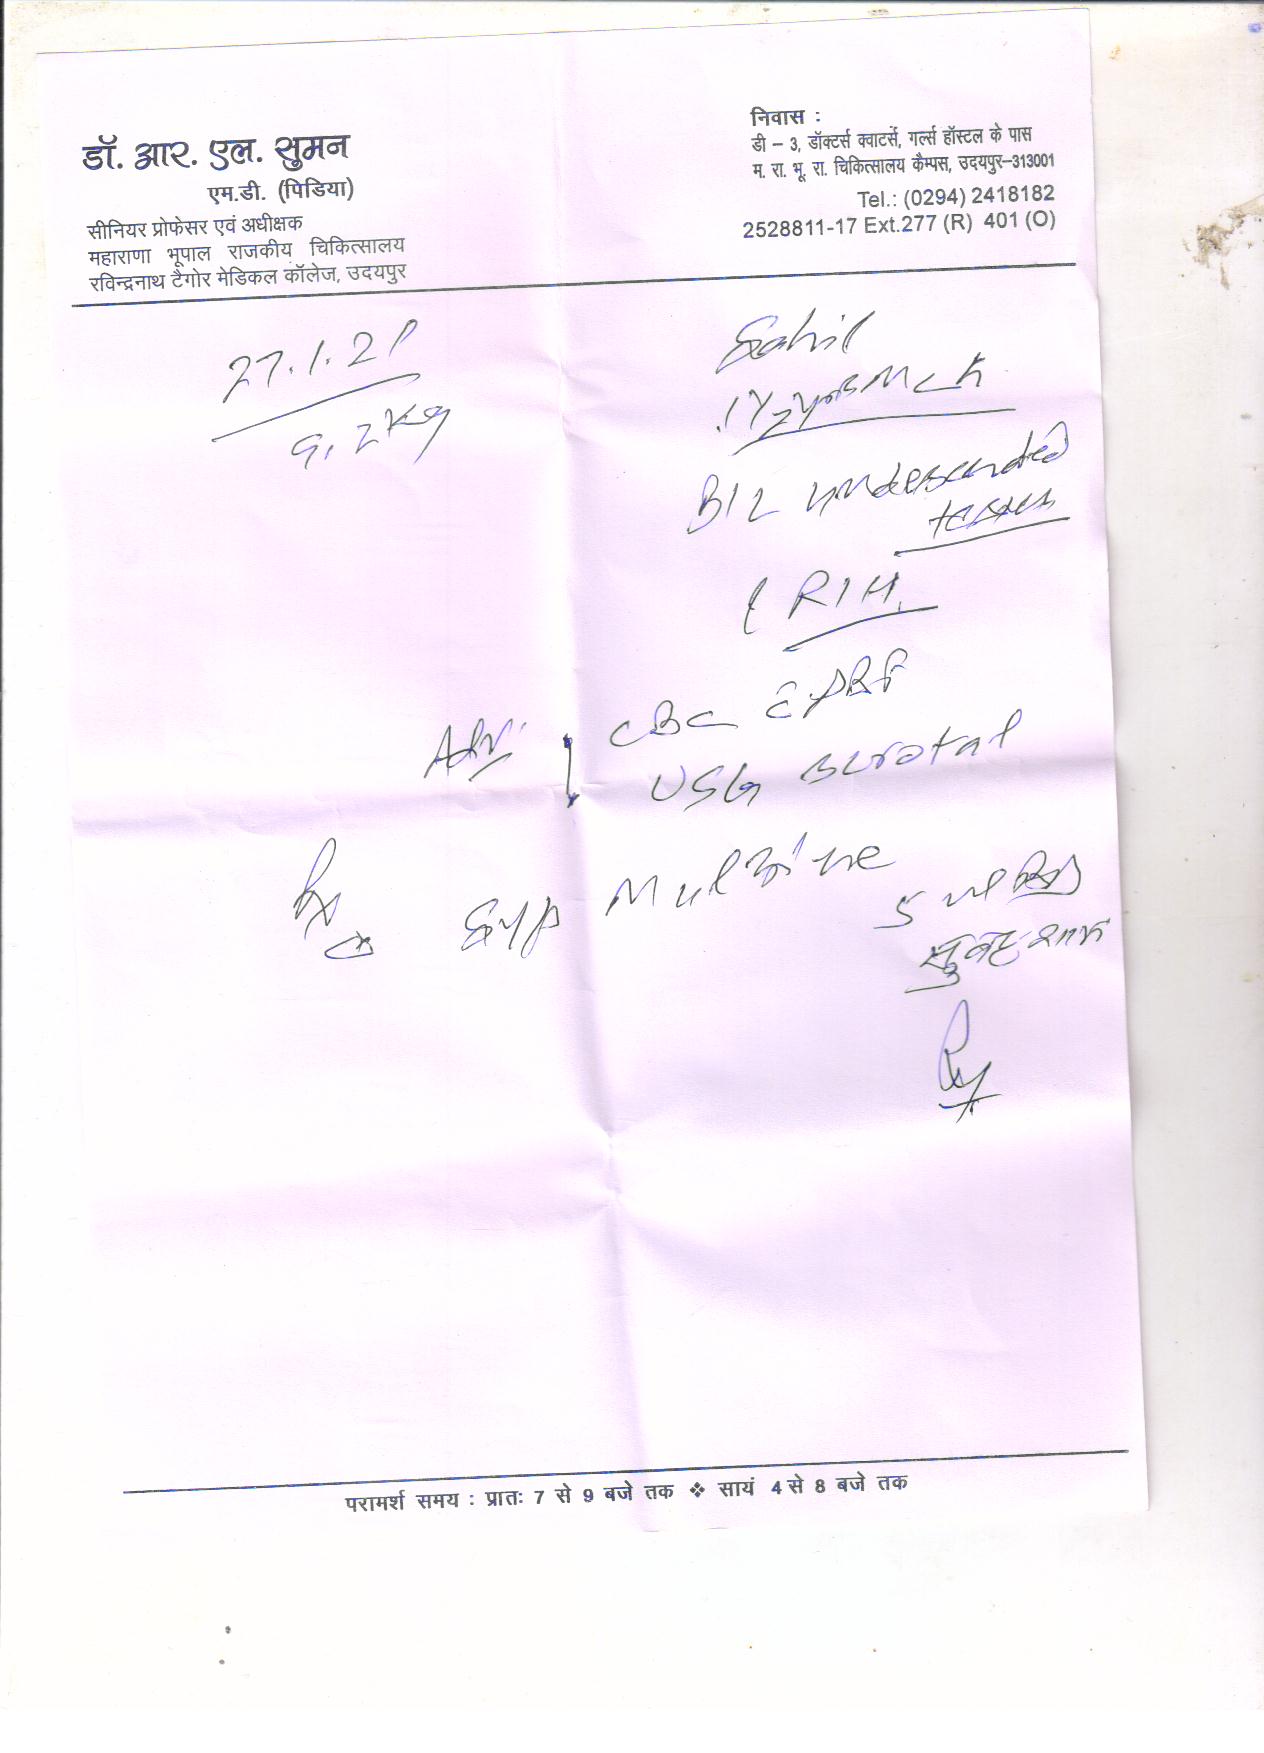 डॉ. आर. एल. सुमन
एम.डी. (पिडिया)
सीनियर प्रोफेसर एवं अधीक्षक
महाराणा भूपाल राजकीय चिकित्सालय
रविन्द्रनाथ टैगोर मेडिकल कॉलेज, उदयपुर
निवास :
डी – 3, डॉक्टर्स क्वाटर्से, गर्ल्स हॉस्टल के पास
म. रा. भू. रा. चिकित्सालय कैम्पस, उदयपुर–313001
Tel.: (0294) 2418182
2528811-17 Ext.277 (R) 401 (O)
27.1.21
9.2Kg
Sahil
B/L undescended
testes
RIH
Adv. CBC PBF
USG scrotal
Rx
Syp
5 ml BD
सुबह शाम
परामर्श समय : प्रातः 7 से 9 बजे तक ❖ सायं 4 से 8 बजे तक